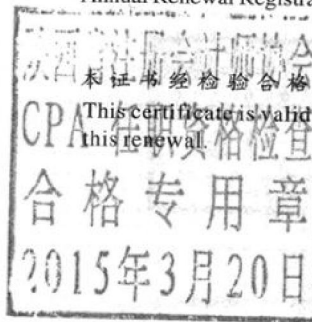 Annual Renewal Registra
陕西省注册会计师协会
本证书经检验合格
This certificate is valid
CPA 任职资格检查
this renewal.
合格专用章
2015年3月20日